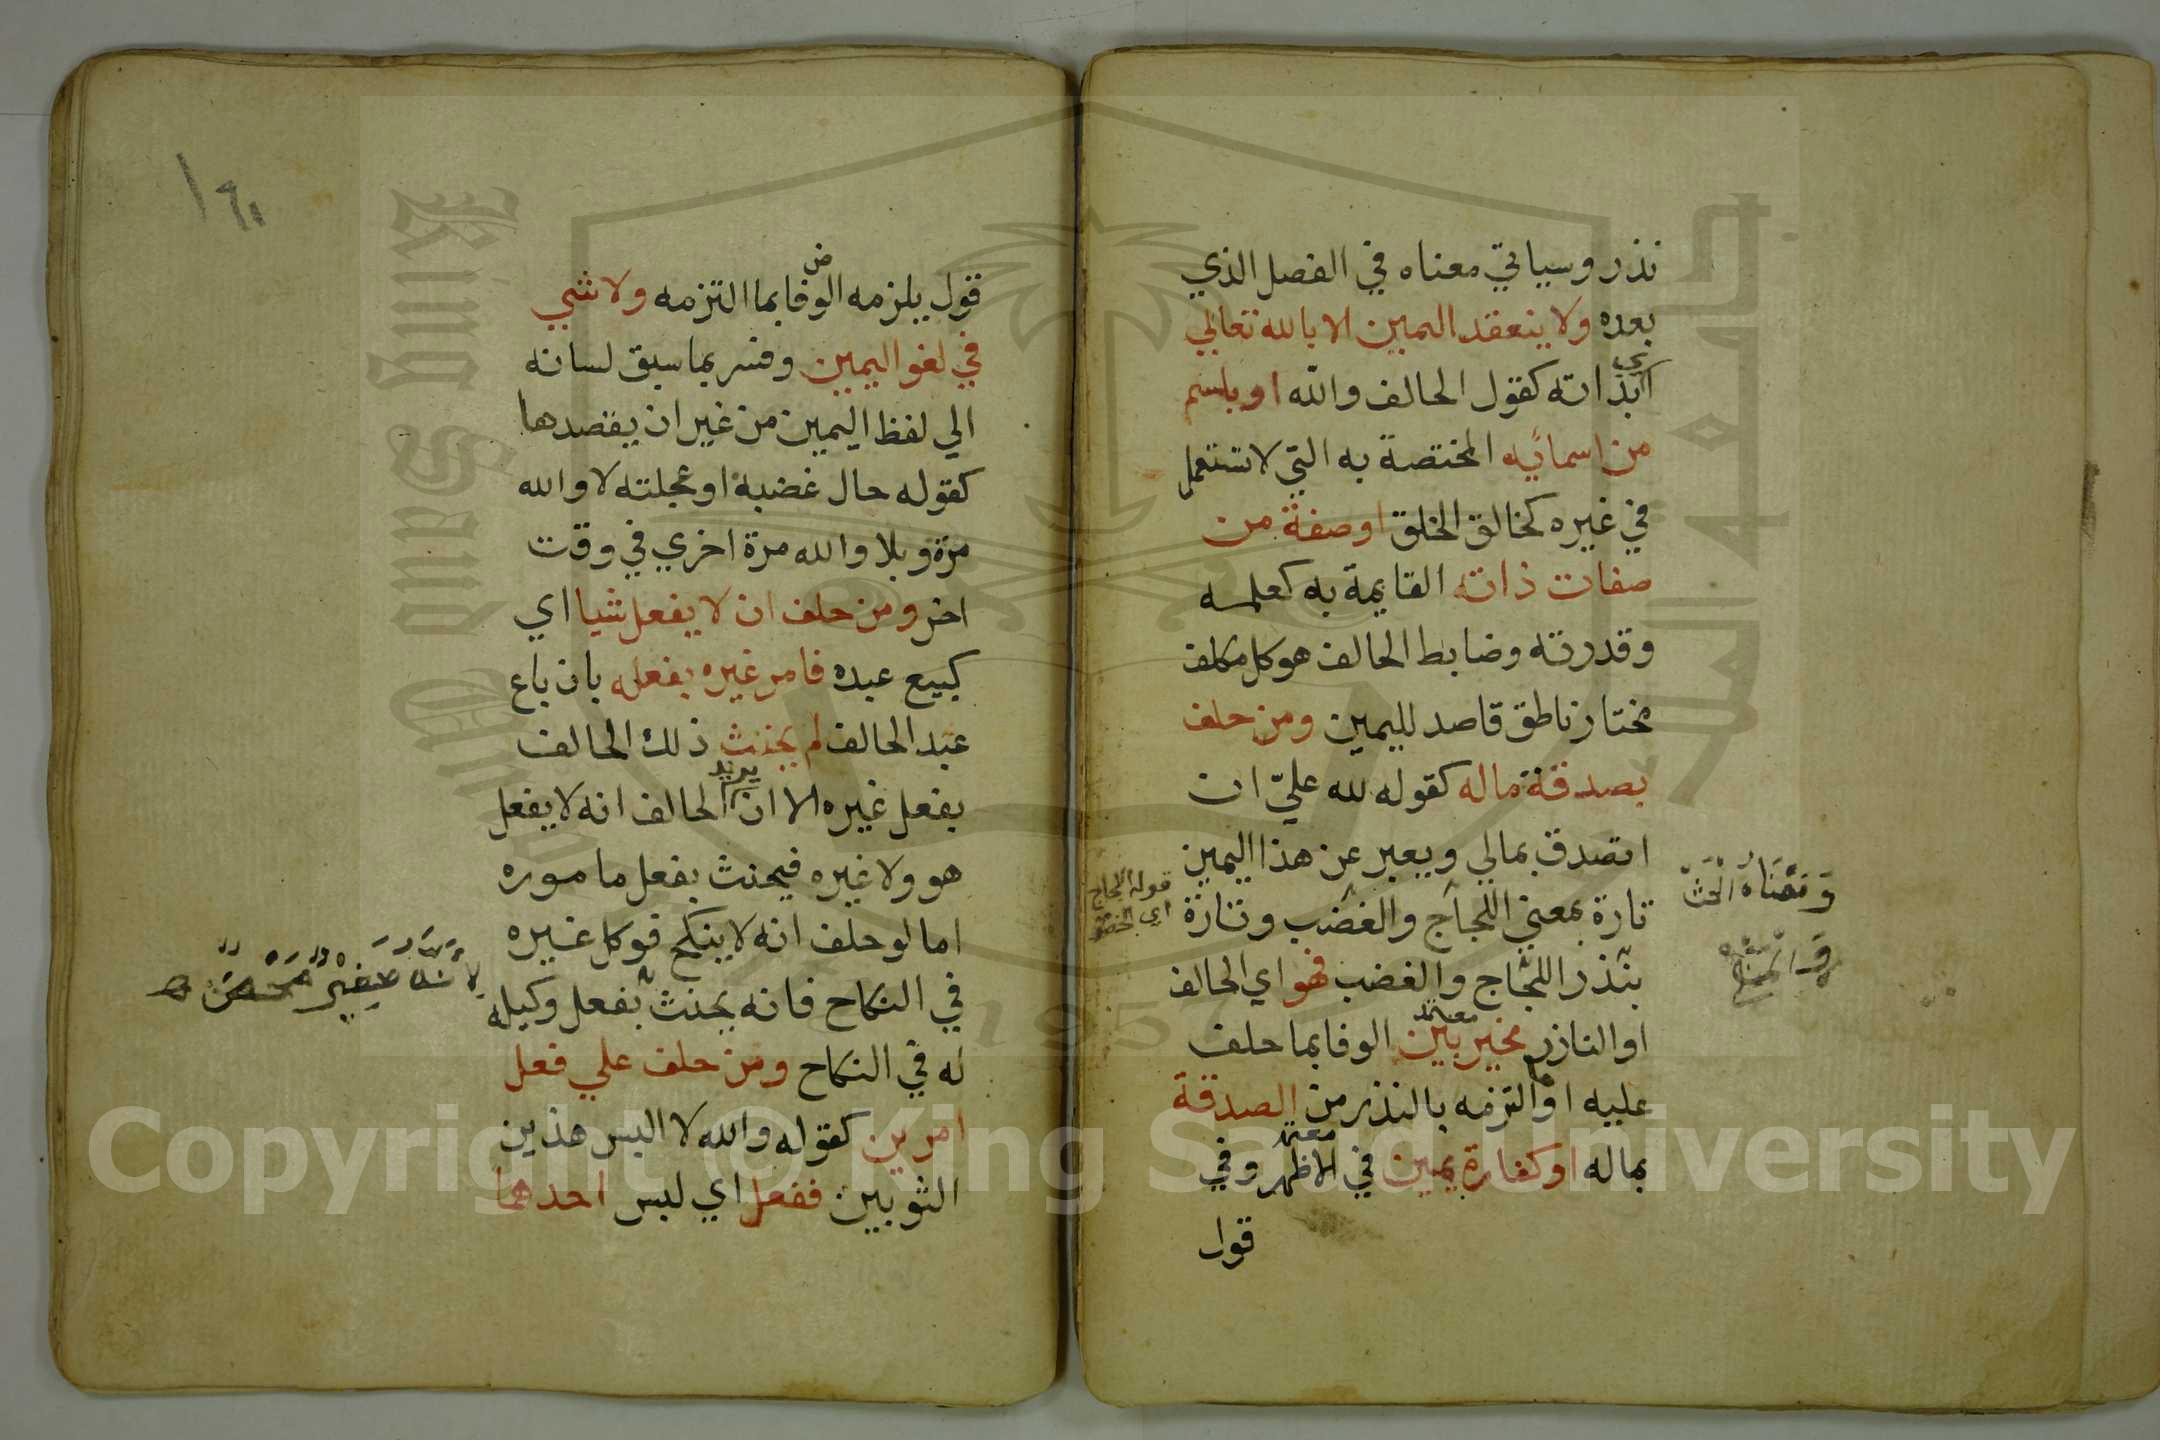 نذر وسياتي معناه في الفصل الذي
بعده ولا ينعقد اليمين الا بالله تعالي
اي بذاته كقول الحالف والله او باسم
من اسمائه المختصة به التي لا تستعمل
في غيره كخالق الخلق او صفة من
صفات ذاته القايمة به كعلمه
وقدرته وضابط الحالف هو كل مكلف
مختار ناطق قاصد لليمين ومن حلف
بصدقة ماله كقوله لله عليّ ان
اتصدق بمالي ويعبر عن هذا اليمين
تارة بمعني اللجاج والغضب وتارة
بنذر اللجاج والغضب فهو اي الحالف
او الناذر مخير بين الوفا بما حلف
معتمد
عليه او التزمه بالنذر من الصدقة
بماله او كفارة يمين في الاظهر وفي
معتمد
قول
ومعناه الحث
قوله اللجاج
اي
١٦٠
قول يلزمه الوفا بما التزمه ولا شي
ض
في لغو اليمين وفسر بما سبق لسانه
الي لفظ اليمين من غير ان يقصدها
كقوله حال غضبه او عجلته لا والله
مرة وبلا والله مرة اخري في وقت
اخر ومن حلف ان لا يفعل شيا اي
كبيع عبده فامر غيره بفعله بان باع
عبد الحالف لم يحنث ذلك الحالف
بفعل غيره الا ان يريد الحالف انه لا يفعل
هو ولا غيره فيحنث بفعل ماموره
اما لو حلف انه لا ينكح فوكل غيره
في النكاح فانه يحنث بفعل وكيله
له في النكاح ومن حلف علي فعل
امرين كقوله والله لا البس هذين
الثوبين ففعل اي لبس احدهما
لانه سفير محض
King Saud University
1957
Copyright © King Saud University